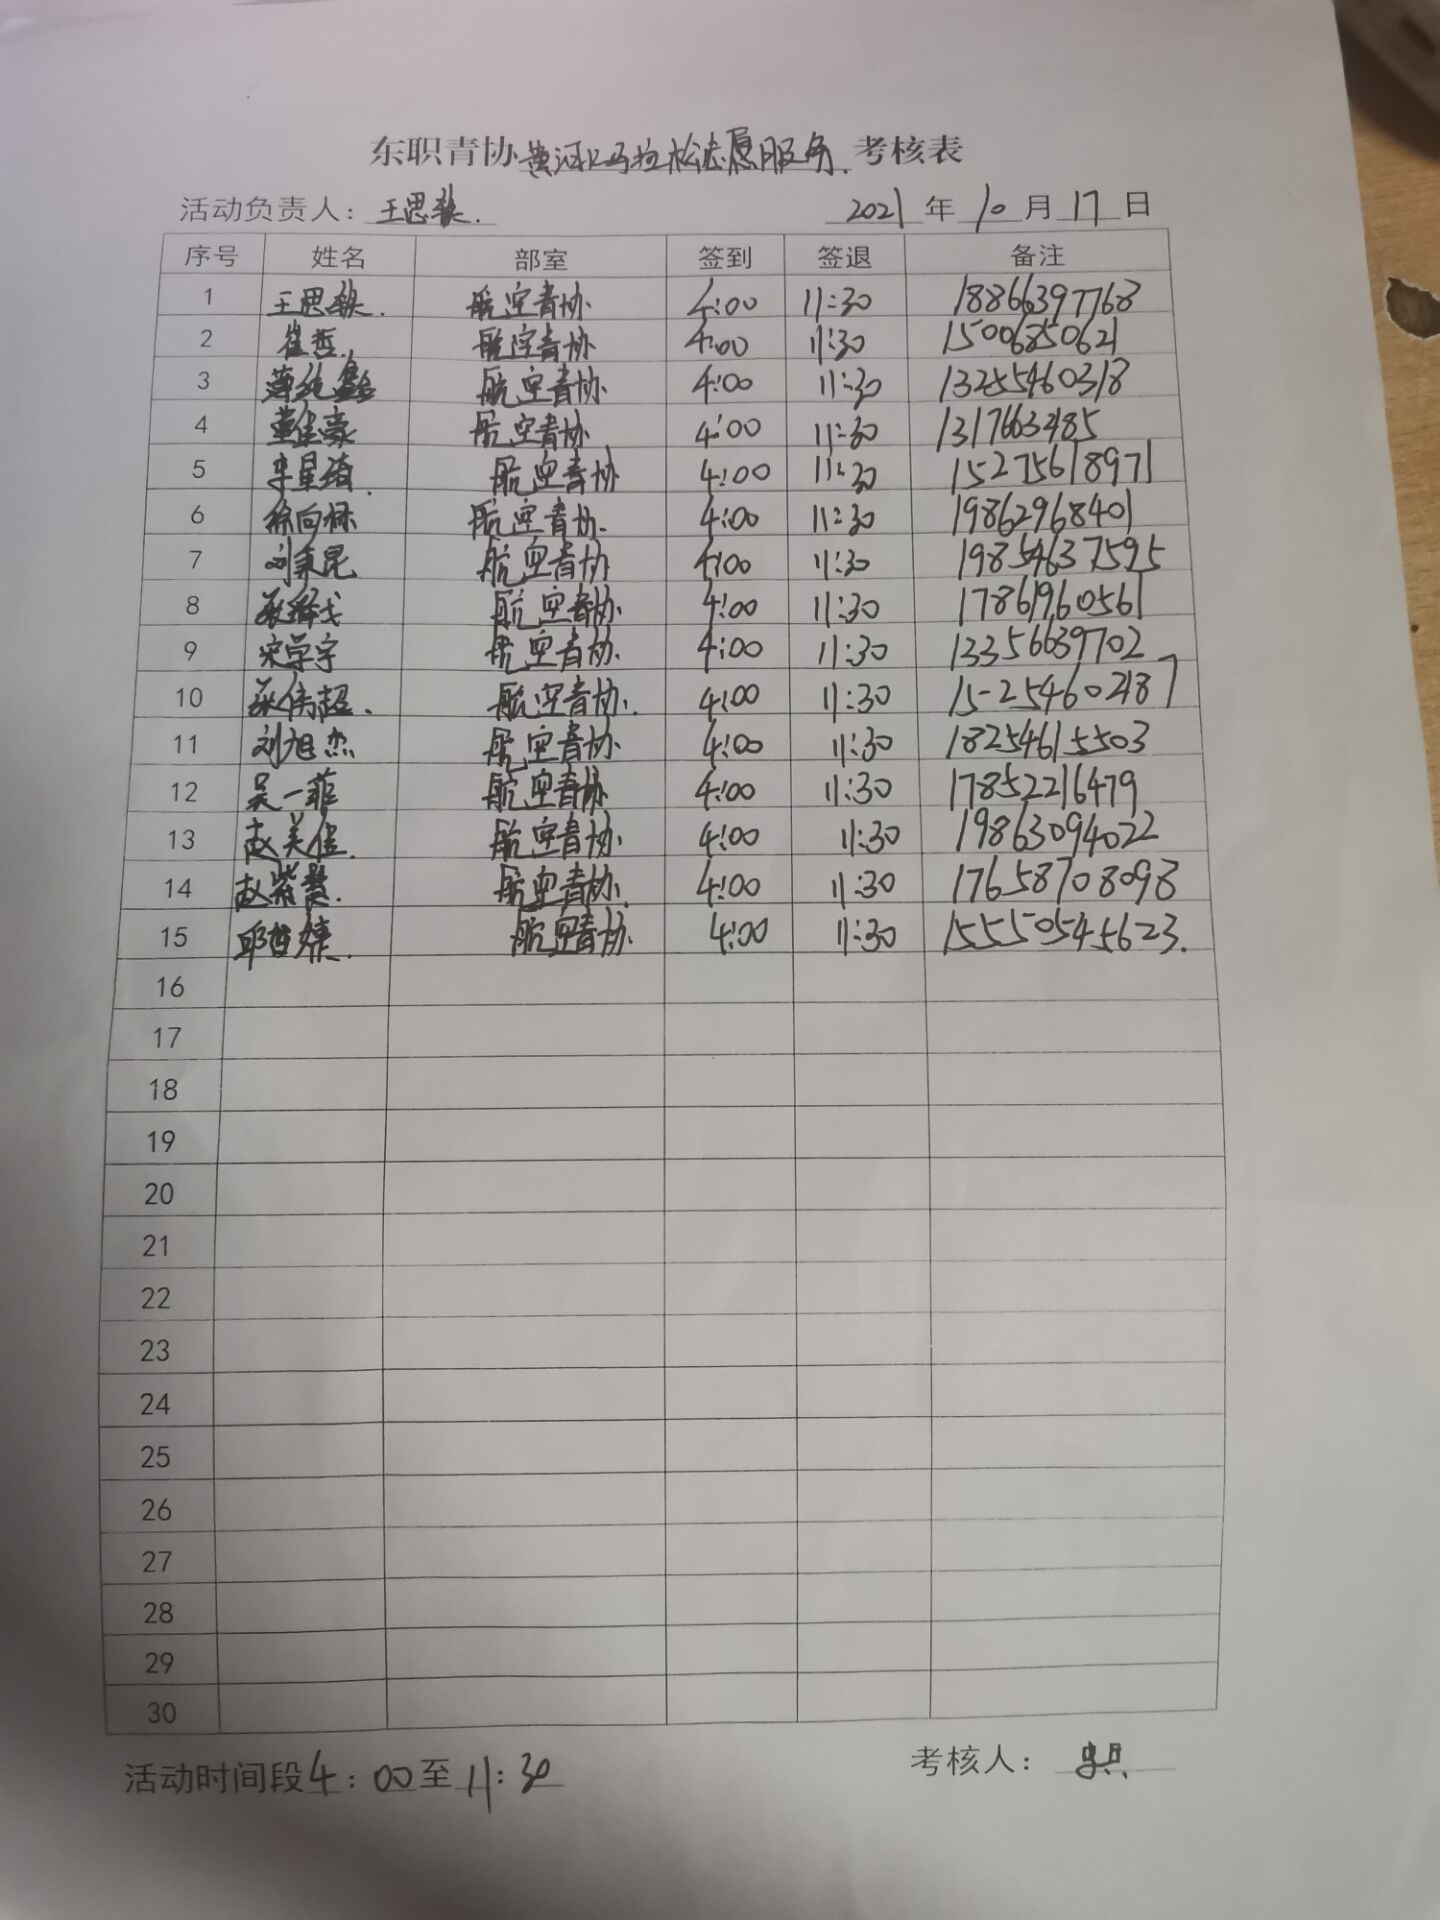 东职青协黄河口马拉松志愿服务.考核表
活动负责人：王思 2021年10月17日
序号 姓名 部室 签到 签退 备注
1 王思 航空青协 4:00 11:30 18866397768
2 崔哲. 航空青协 4:00 11:30 15006850621
3 航空青协 4:00 11:30 13255460318
4 董佳豪 航空青协 4:00 11:30 1317663485
5 李星 航空青协 4:00 11:30 15275618971
6 徐向 航空青协. 4:00 11:30 19862968401
7 刘秉昆 航空青协 4:00 11:30 19854637595
8 航空青协. 4:00 11:30 17861960561
9 宋学宇 航空青协. 4:00 11:30 13356639702
10 伟超. 航空青协. 4:00 11:30 15254602187
11 刘旭杰 航空青协. 4:00 11:30 18254615503
12 吴一菲 航空青协 4:00 11:30 17852216479
13 赵美佳. 航空青协. 4:00 11:30 19863094022
14 赵紫 航空青协. 4:00 11:30 17658708098
15 邱 航空青协. 4:00 11:30 15550545623.
16
17
18
19
20
21
22
23
24
25
26
27
28
29
30
活动时间段4：00至11：30 考核人：